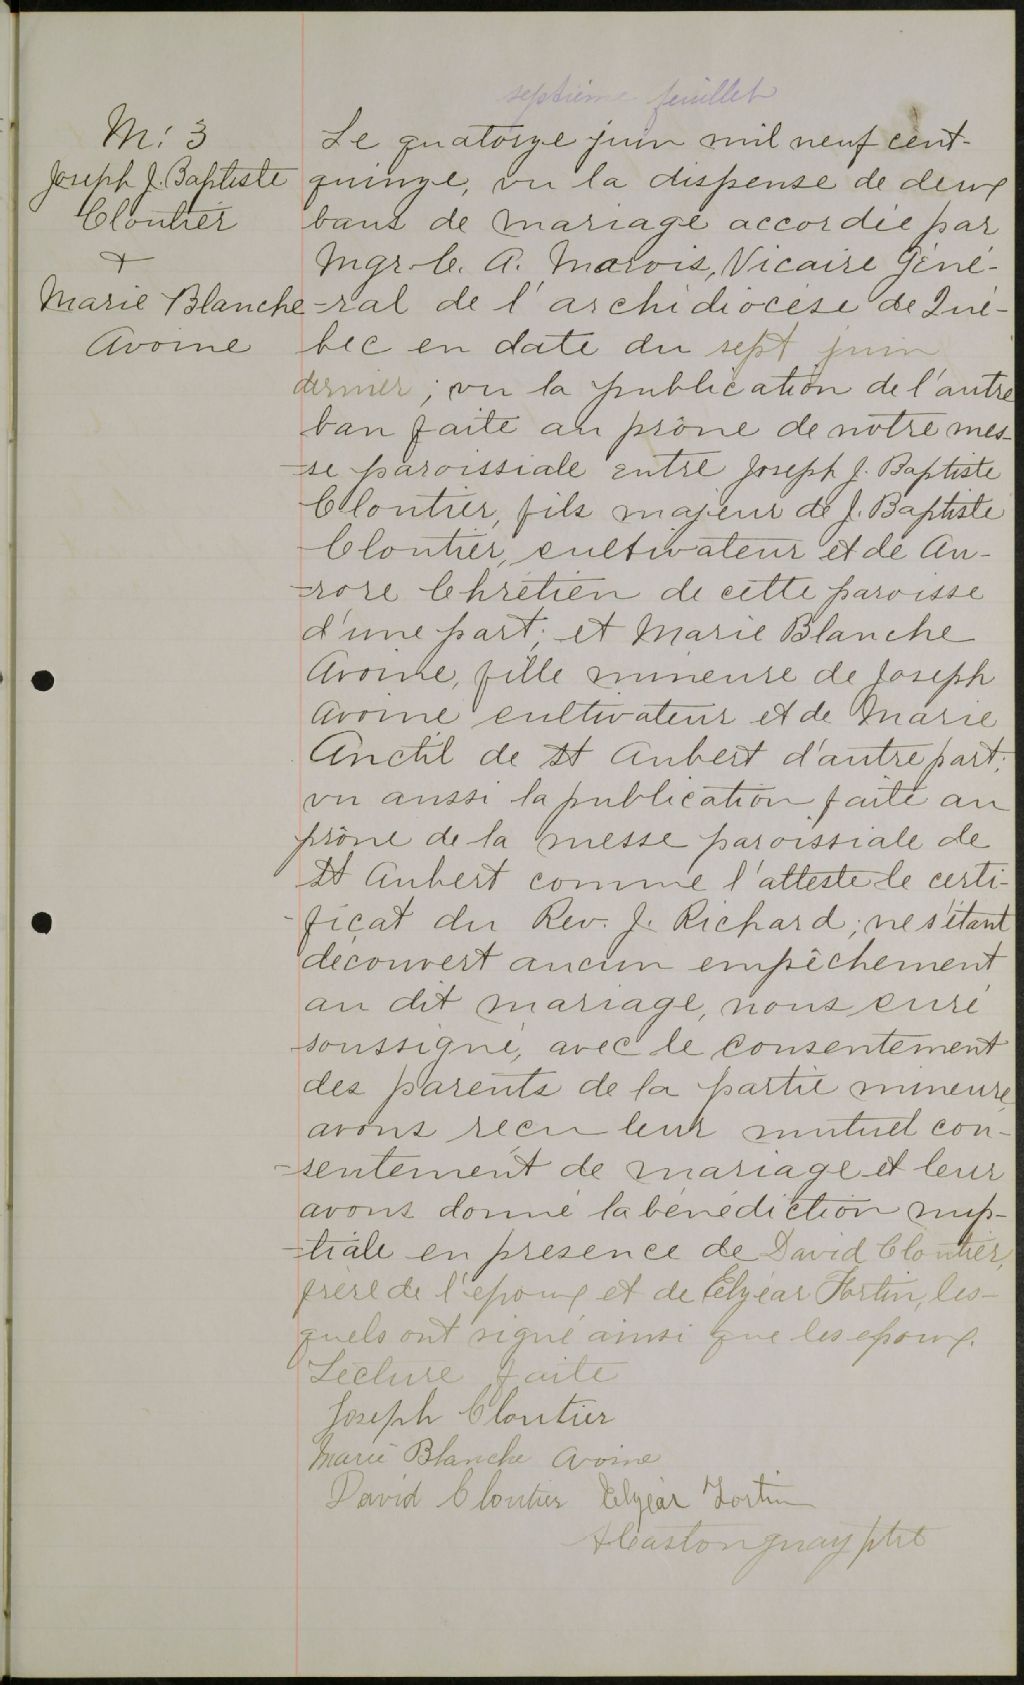 septième feuillet
M: 3
Joseph J. Baptiste
Cloutier
+
Marie Blanche
Avoine
Le quatorze juin mil neuf cent-
quinze, vu la dispense de deux
bans de mariage accordée par
Mgr C. A. Marois, Vicaire Géné-
-ral de l'archidiocèse de Qué-
bec en date du sept juin
dernier; vu la publication de l'autre
ban faite au prône de notre mes-
-se paroissiale entre Joseph J. Baptiste
Cloutier, fils majeur de J. Baptiste
Cloutier, cultivateur et de Au-
-rore Chrétien de cette paroisse
d'une part; et Marie Blanche
Avoine, fille mineure de Joseph
Avoine cultivateur et de Marie
Anctil de St Aubert d'autre part;
vu aussi la publication faite au
prône de la messe paroissiale de
St Aubert comme l'atteste le certi-
-ficat du Rev. J. Richard; ne s'étant
découvert aucun empêchement
au dit mariage, nous curé
soussigné, avec le consentement
des parents de la partie mineure,
avons reçu leur mutuel con-
-sentement de mariage et leur
avons donné la bénédiction nup-
-tiale en présence de David Cloutier,
frère de l'époux et de Elzéar Fortin, les-
quels ont signé ainsi que les époux.
Lecture faite
Joseph Cloutier
Marie Blanche Avoine
David Cloutier Elzéar Fortin
A Castonguay ptre